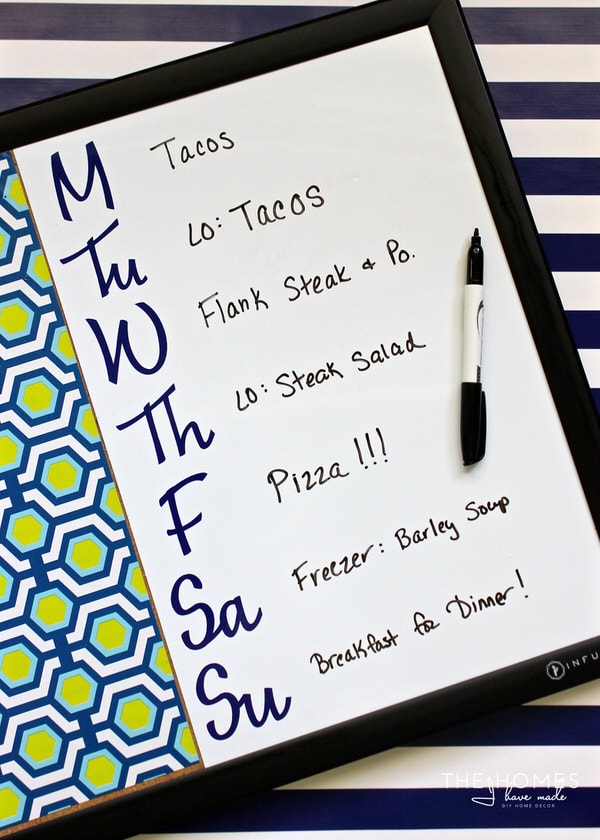 M Tacos
Tu LO: Tacos
W Flank Steak & Po.
Th LO: Steak Salad
F Pizza!!!
Sa Freezer: Barley Soup
Su Breakfast for Dinner!
INFU
THE HOMES
I have made
DIY HOME DECOR